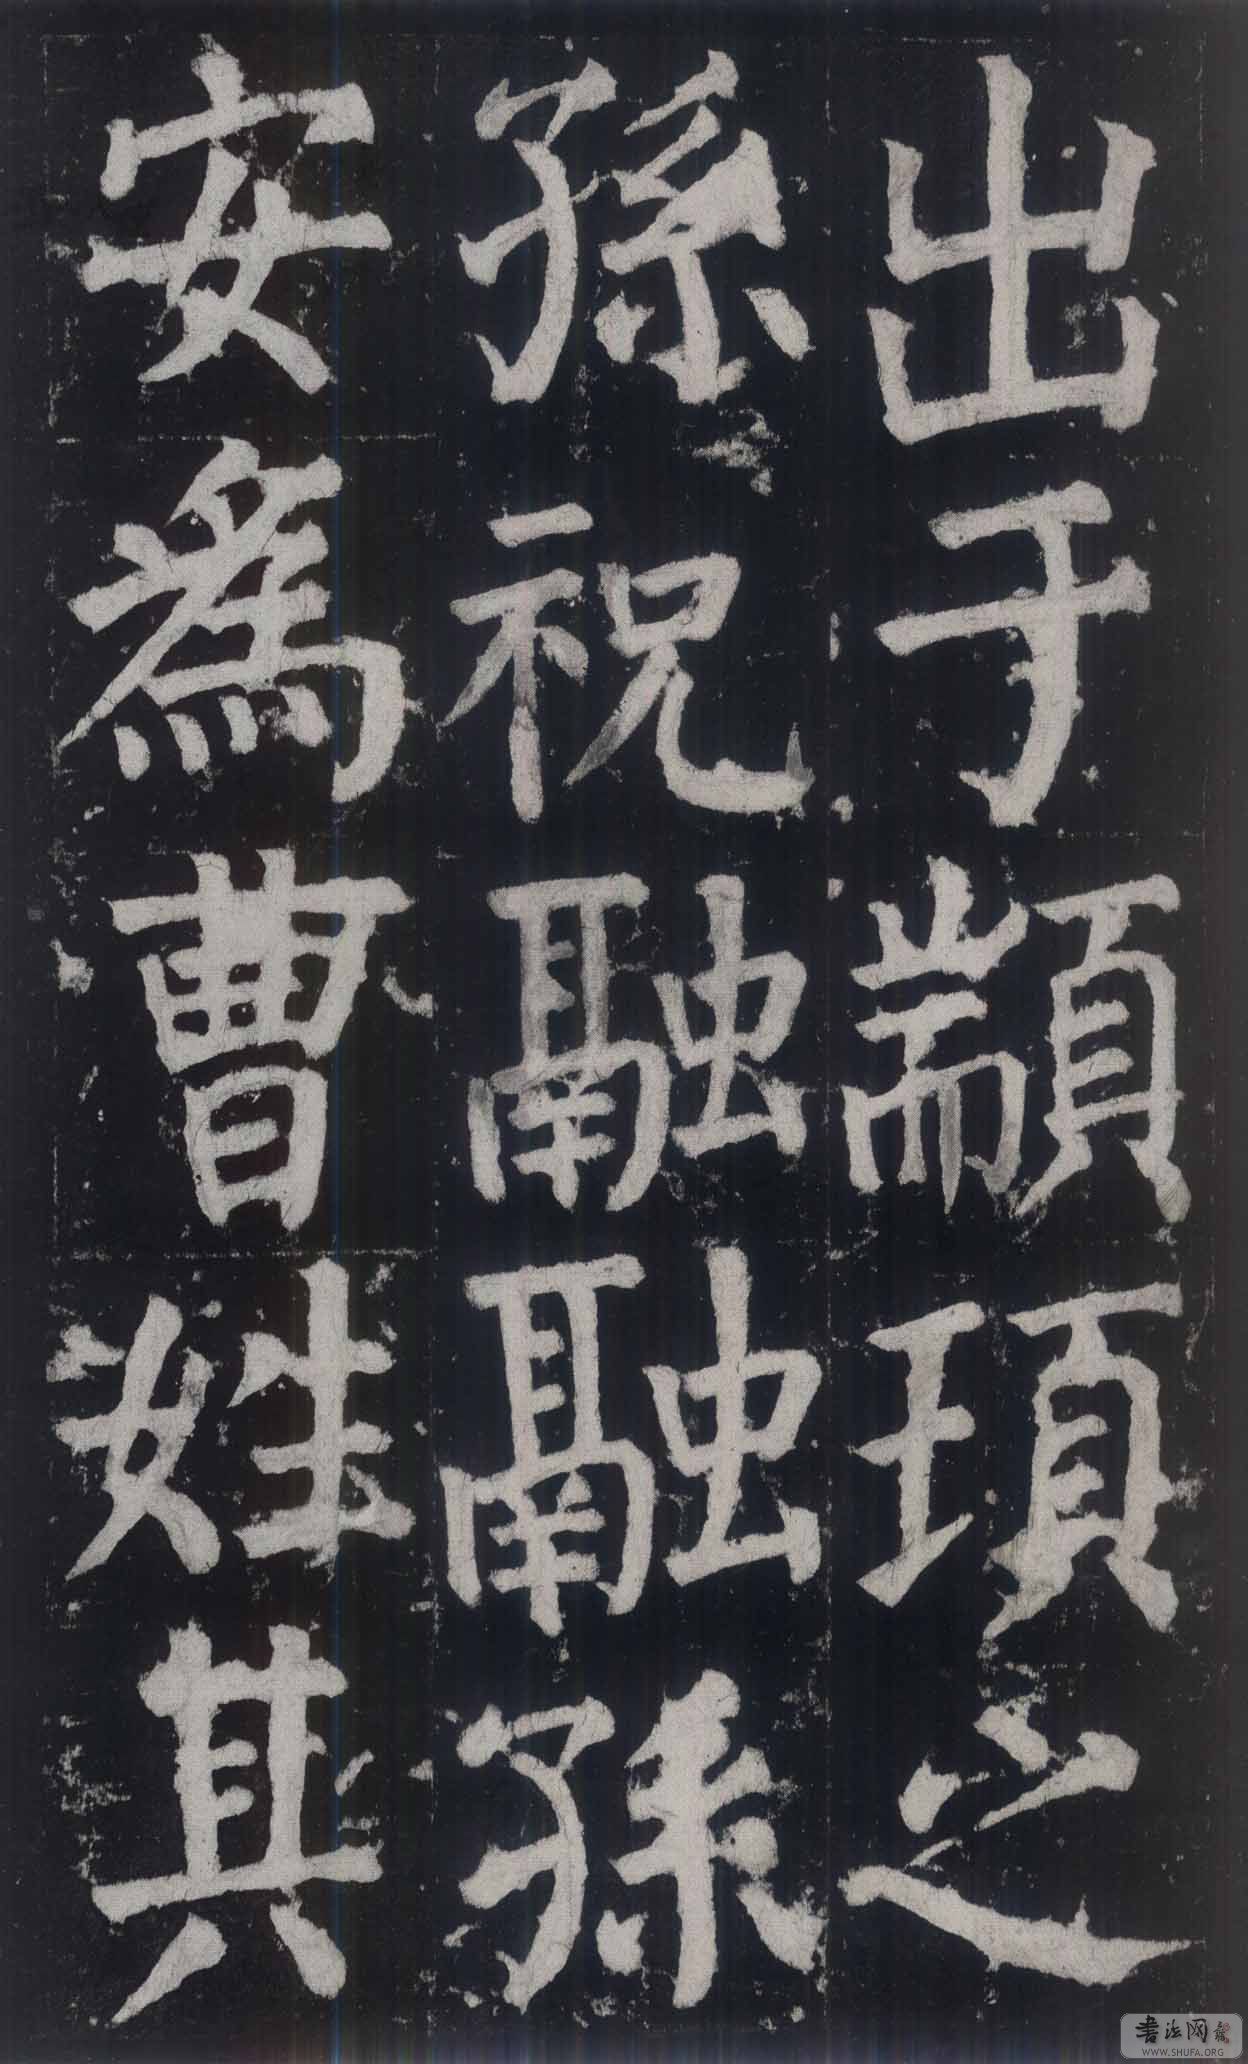 出于顓頊之
孫祝融融孫
安為曹姓其
书法网
WWW.SHUFA.ORG